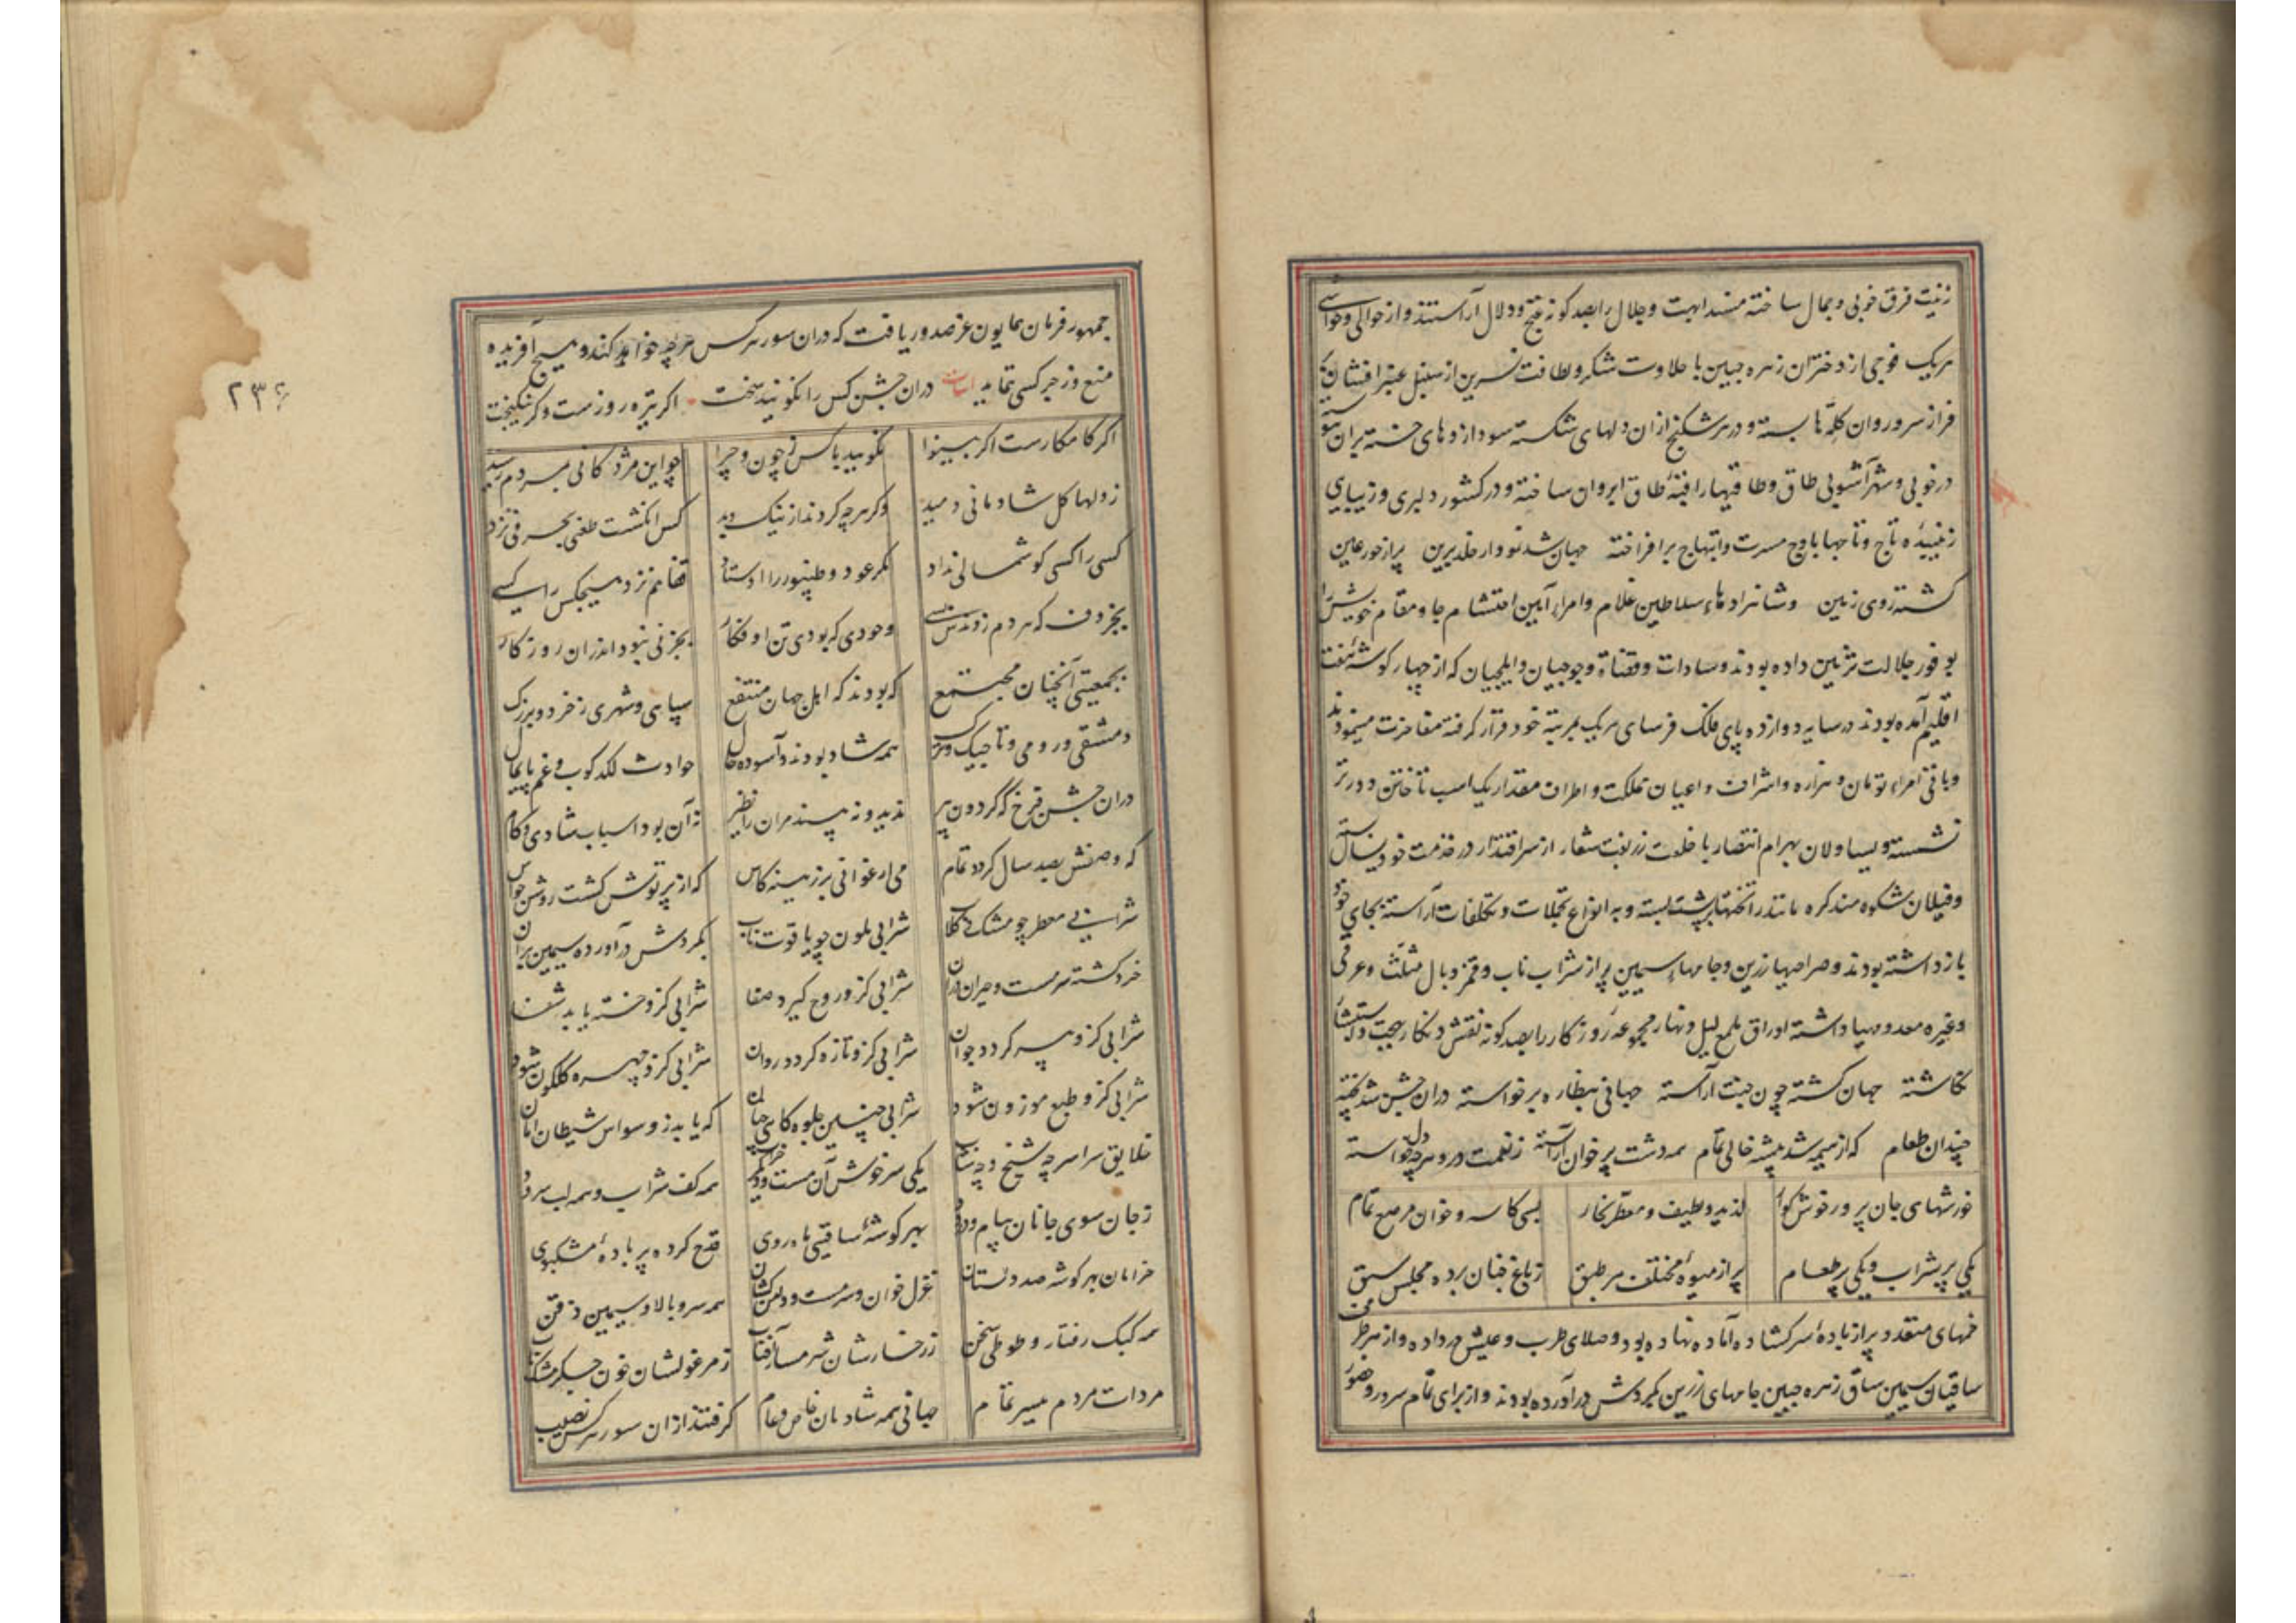 زینت فرق خوبی و جمال ساخته مسند ابهت و جلال را بصد کونه غنج و دلال آراستند و از حوالی و حواشی
هریک فوجی از دختران زهره جبین با حلاوت شکر و لطافت نسرین از سنبل عنبر افشان بر
فراز سرو روان کلّه‌ها بسته و در هر شکنج ازان دلهای شکسته سودازدهای خسته
در خوبی و شهرآشوبی طاق و طاقیها را فتنهٔ طاق ابروان ساخته و در کشور دلبری و زیبایی
زیبیدهٔ تاج و تاجها باوج مسرت و ابتهاج برافراخته جهان شد نو وار خلد برین پر از حور عین
کشته روی زمین و شاهزادهاء سلاطین غلام و امراء آیین احتشام جا و مقام خویش را
بوفور جلالت تزیین داده بودند و سادات و قضاة و وجیهان و ایلچیان که از چهار کوشهٔ هفت
اقلیم آمده بودند در سایه دوازده پای فلک فرسای هریک بمرتبه خود قرار کرفته مفاخرت مینمودند
و باقی امراء تومان و هزاره و اشراف و اعیان مملکت و اطراف مقدار یک اسب تاختن دورتر
نشسته و یساولان بهرام انتصار با خلعت زربفت شعار از سر اقتدار در خدمت خود
و فیلان شکوه‌مند که مانند تختها بر پشت بسته و به انواع تجملات و تکلفات آراسته بجای خود
بازداشته بودند و صراحیها زرین و جامهاء سیمین پر از شراب ناب و قمز و بال مثلّث و عرقی
و غیره معد و مهیا داشته اوراق ملمع لیل و نهار مجموعه روزکار را بصد کونه نقش و نکار بهجت
نکاشته جهان کشته چون جنت آراسته جهانی بنظاره برخواسته دران جشن شد پخته
چندان طعام که از هیمه شد بیشه خالی تمام همه دشت پر خوان آراسته ز نعمت درو هرچه دل خواسته
خورشهای جان پرور خوش کوار لذیذ و لطیف و معطر بخار بسی کاسه و خوان مرصع تمام
یکی پر شراب و یکی پر طعام پر از میوهٔ مختلف هر طبق ز باغ جنان برده مجلس سبق
خمهای متعدد پر از بادهٔ سر کشاده آماده نهاده بود و صلای طرب و عیش در داده و از هر طرف
ساقیان سیمین ساق زهره جبین جامهای زرین بکردش درآورده بودند و از برای تمام سرور و حضور
جمهور فرمان همایون عز صدور یافت که دران سور هرکس هرچه خواهد کند و هیچ آفریده
منع و زجر کسی ننماید ابیات دران جشن کس را نکویند سخت اکر تیره روزست وکر نیکبخت
اکر کامکارست اکر بینوا نکویید با کس ز چون و چرا چو این مژدکانی بمردم رسید
ز دلها کل شادمانی دمید وکر هرچه کردند از نیک و بد کس انکشت طعنی بحرفی نزد
کسی را کسی کوشمالی نداد مکر عود و طنبور را اوستاد قفا هم نزد هیچکس را کسی
بجز دف که هر دم زدندش بسی وجودی که بودی تن او فکار بجز نی نبود اندران روزکار
بجمعیتی آنچنان مجتمع که بودند که اهل جهان منتفع سپاهی و شهری ز خرد و بزرک
دمشقی و رومی و تاجیک و ترک همه شاد بودند و آسوده حال حوادث لکدکوب و غم پایمال
دران جشن فرخ که کردون پیر ندید و نه بیند مران را نظیر نه آن بود اسباب شادی و کام
که وصفش بصد سال کردد تمام می ارغوانی بزرینه کاس که از پرتوش کشت روشن حواس
شرابی معطر چو مشک و کلاب شرابی ملون چو یاقوت ناب بکردش درآورده سیمین بران
خرد کشته سرمست و حیران دران شرابی کزو روح کیرد صفا شرابی کزو خسته یابد شفا
شرابی کزو پیر کردد جوان شرابی کزو تازه کردد روان شرابی کزو چهره کلکون شود
شرابی کزو طبع موزون شود شرابی چنین جلوه‌کاه جنان که یابد ز وسواس شیطان امان
خلایق سراسر چه شیخ و چه شاب یکی سرخوش آن مست و دیکر خراب همه کف شراب و همه لب سرود
ز جان سوی جانان پیام و درود بهر کوشهٔ ساقیی ماه‌روی قدح کرده پر بادهٔ مشکبوی
خرامان بهر کوشه صد دلستان غزل خوان و سرمست و دامن کشان همه سرو بالا و سیمین ذقن
همه کبک رفتار و طوطی سخن ز رخسارشان شرمسار آفتاب ز مرغولشان خون جکر مشک ناب
مرادات مردم میسر تمام جهانی همه شادمان خاص و عام کرفتند ازان سور هرکس نصیب
۲۳۶